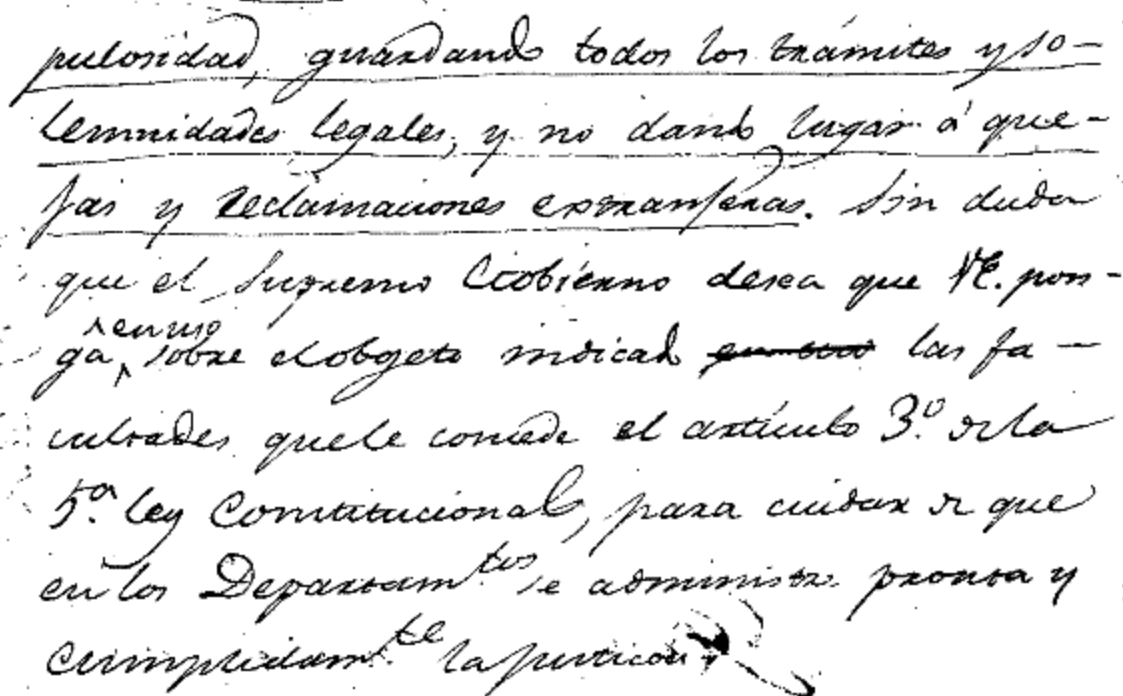 pulosidad, guardando todos los trámites y so-
lemnidades legales, y no dando lugar á que-
jas y reclamaciones extranjeras. Sin duda
que el Supremo Gobierno desea que VE. pon-
ga sobre el obgeto indicado las fa-
cultades que le concede el artículo 3.º de la
5.ª ley Constitucional, para cuidar de que
en los Departam.tos se administre pronta y
cumplidam.te la